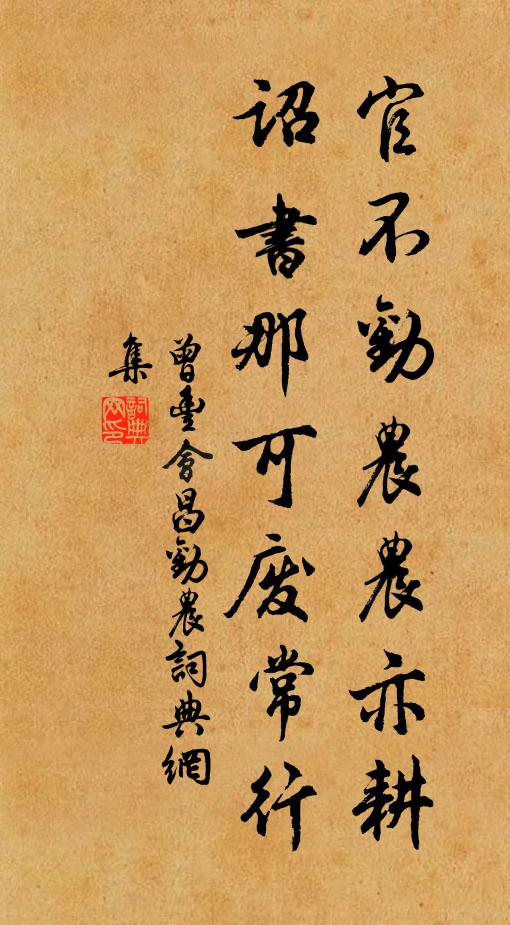 官不勸農農亦耕
詔書那可廢常行
曾豐會昌勸農詞典網
集
詞典网印